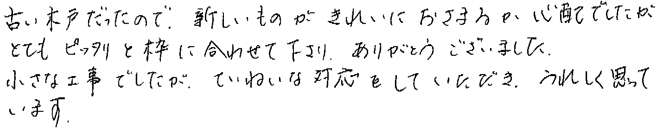 古い木戸だったので、新しいものがきれいにおさまるか心配でしたが
とてもピッタリと枠に合わせて下さり、ありがとうございました。
小さな工事でしたが、ていねいな対応をしていただき、うれしく思って
います。